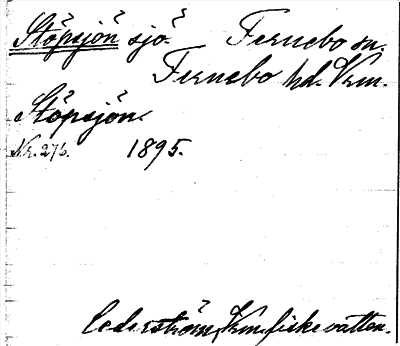 Stöpsjön sjö. Fernebo sn.
Fernebo hd. Vrm.
Stöpsjön.
Nr. 276. 1895.
Cederström, Vrm. fiskevatten.